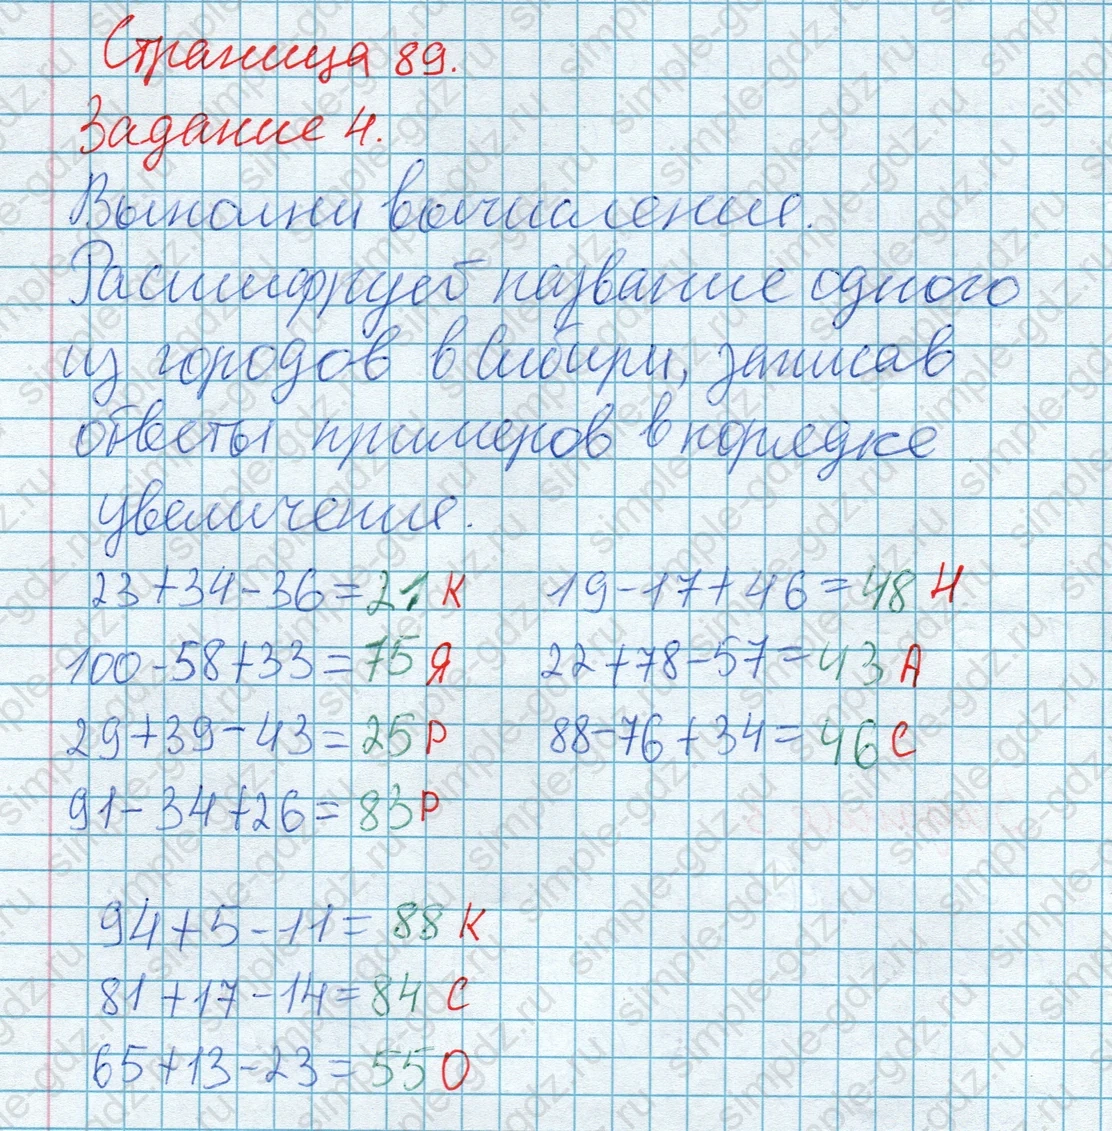 Страница 89.
Задание 4.
Выполни вычисления.
Расшифруй название одного
из городов в Сибири, записав
ответы примеров в порядке
увеличения.
23+34-36=21 К 19-17+46=48 Н
100-58+33=75 Я 22+78-57=43 А
29+39-43=25 Р 88-76+34=46 С
91-34+26=83 Р
94+5-11=88 К
81+17-14=84 С
65+13-23=55 О
simple-gdz.ru